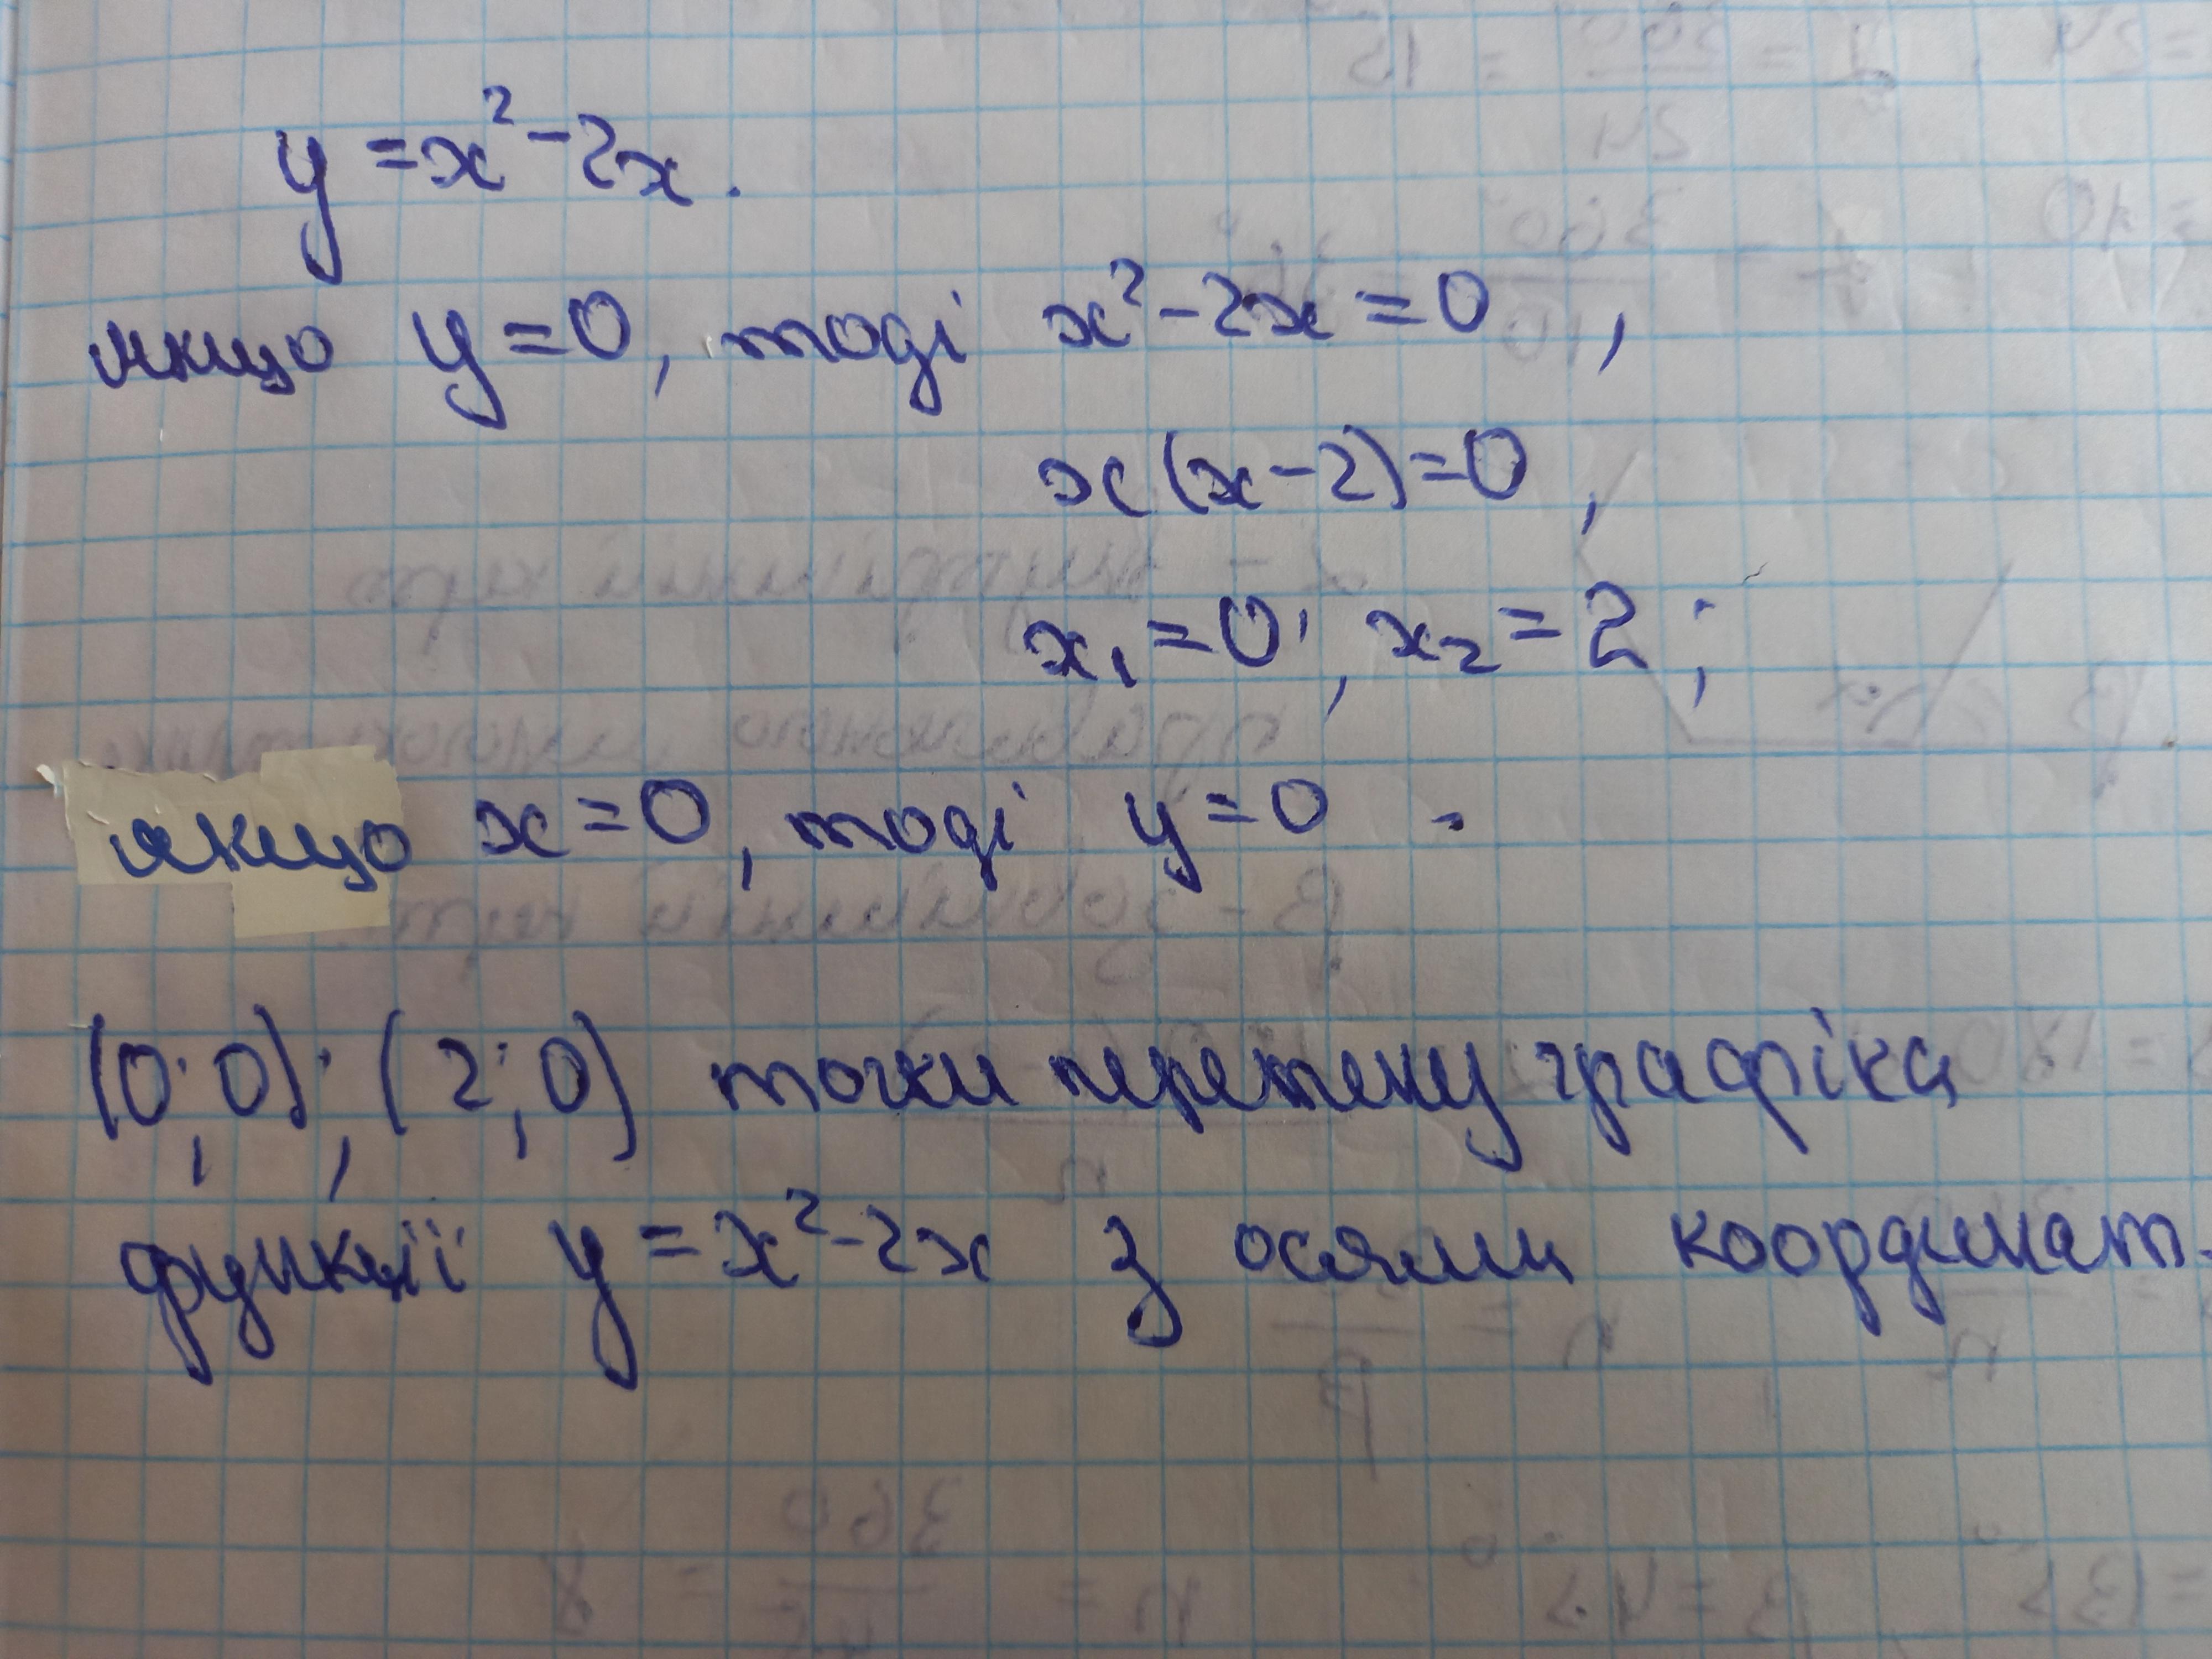 y = x² - 2x.
якщо y = 0, тоді x² - 2x = 0,
x(x - 2) = 0,
x₁ = 0; x₂ = 2;
якщо x = 0, тоді y = 0.
(0; 0); (2; 0) точки перетину графіка
функції y = x² - 2x з осями координат.